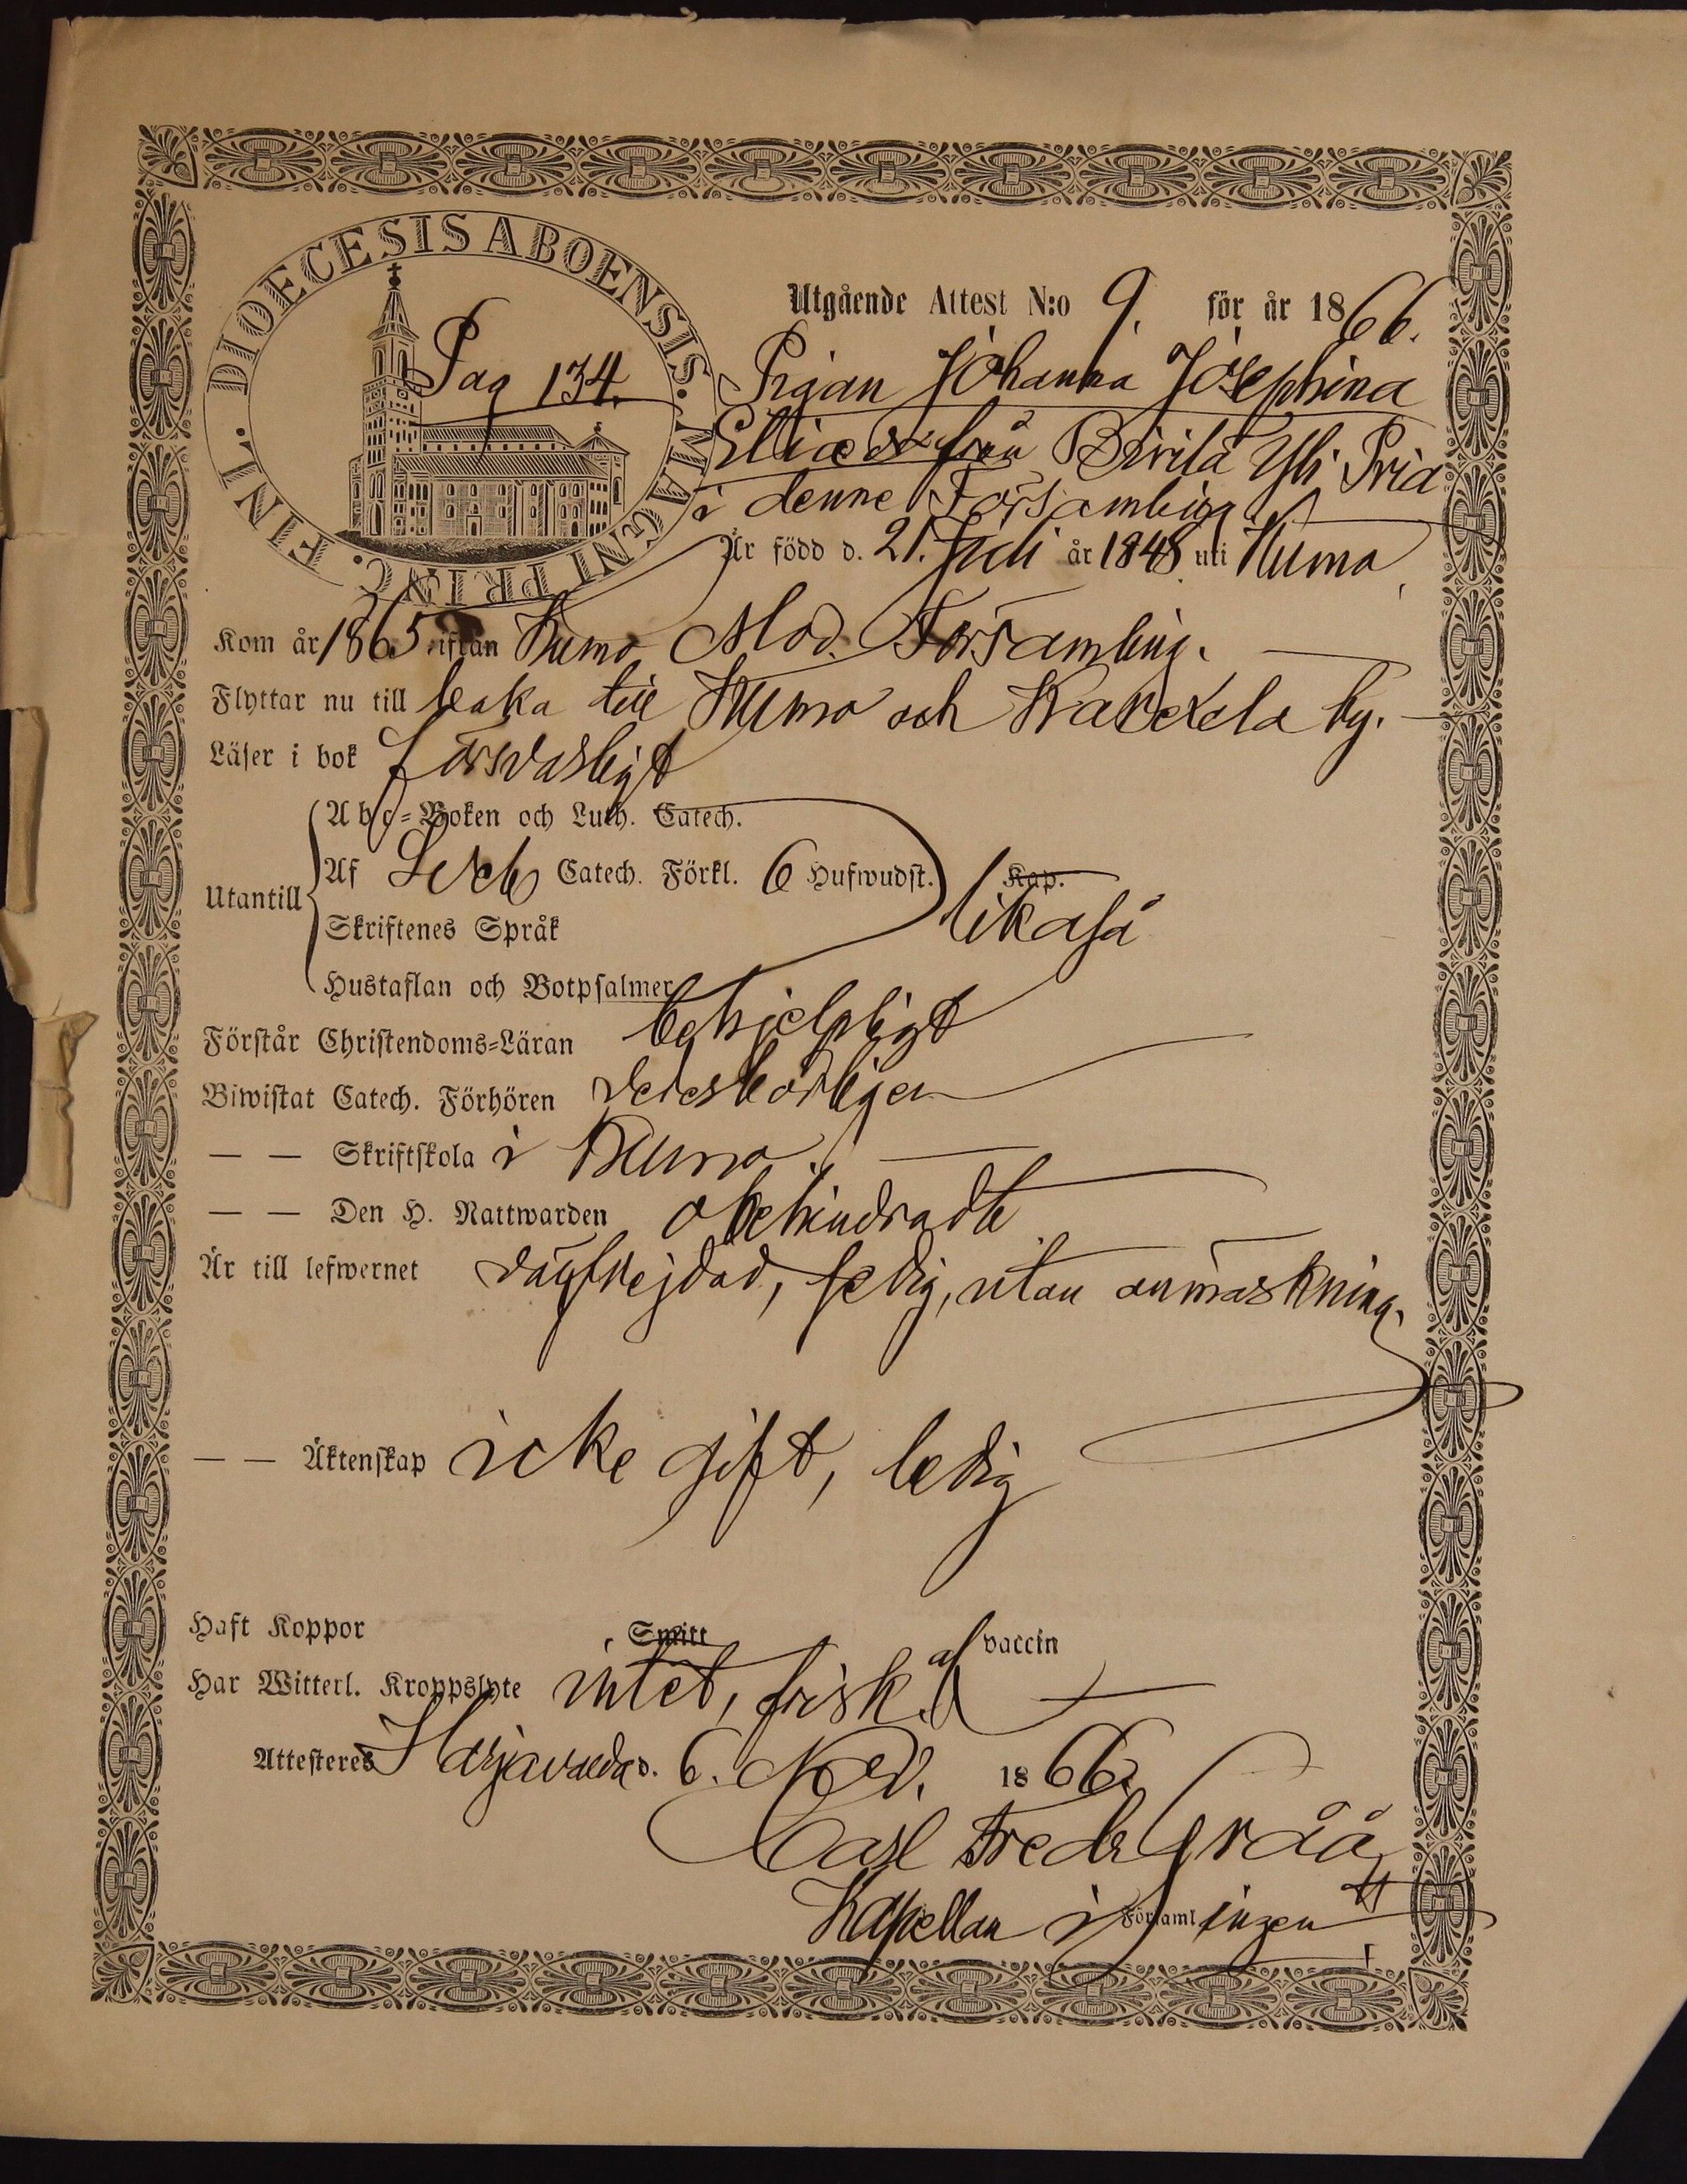 DIOECESIS ABOENSIS. MAGNI PRINC. FINL.
Pag 134.
Utgående Attest N:o 9. för år 1866.
Pigan Johanna Josephina
Eliaed:r från Yli Pria
i denne Församling
Är född d. 21. Juli år 1848 uti Kumo
Kom år 1865 ifrån Kumo Mod. Församling.
Flyttar nu till baka till Kumo och by.
Läser i bok försvarligt
Abc-Boken och Luth. Catech.
Utantill Af Catech. Förkl. 6 Hufwudst. Kap.
likaså
Skriftenes Språk
Hustaflan och Botpsalmer
Förstår Christendoms-Läran behjelpligt
Biwistat Catech. Förhören vederbörligen
— — Skriftskola i Kumo
— — Den H. Nattwarden obehindradt
Är till lefwernet välfrejdad, ledig, utan anmärkning.
— — Äktenskap icke gift, ledig
Haft Koppor Smitt af vaccin
Har Witterl. Kroppslyte intet, frisk.
Attesteres Harjavalda d. 6. Nov. 1866.
Carl Fredr Gråå
Kapellan i Församlingen